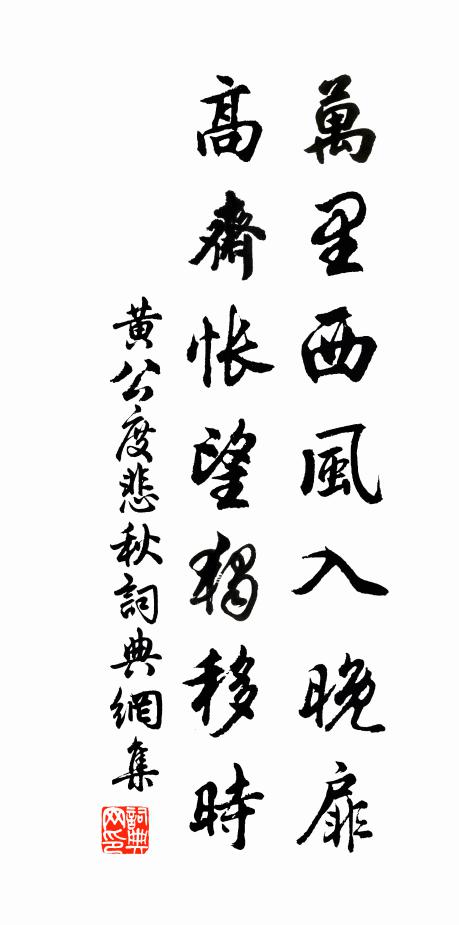 萬里西風入晚扉
高齋悵望獨移時
黃公度悲秋詞典網集
詞典網印